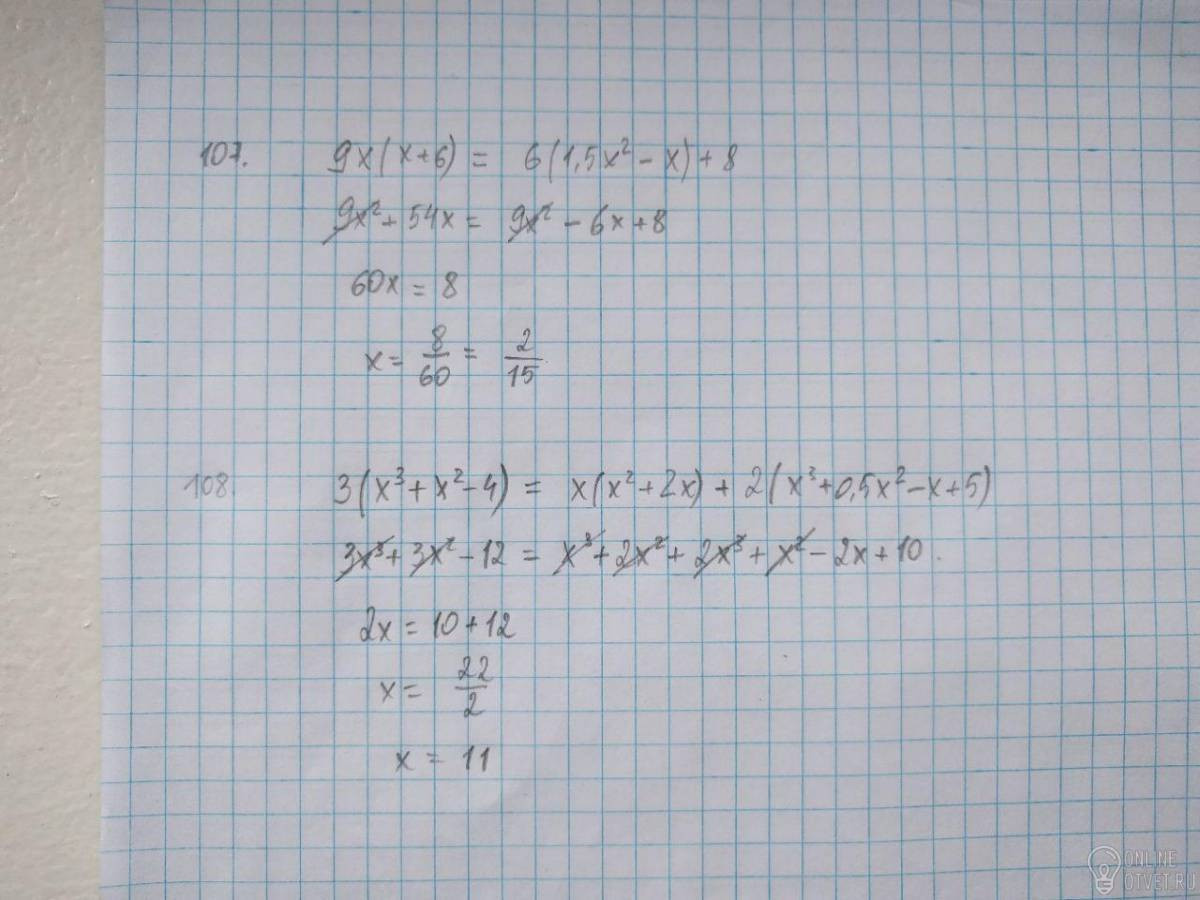 107. 9x(x+6) = 6(1,5x² - x) + 8
9x² + 54x = 9x² - 6x + 8
60x = 8
x = 8/60 = 2/15
108 3(x³ + x² - 4) = x(x² + 2x) + 2(x³ + 0,5x² - x + 5)
3x³ + 3x² - 12 = x³ + 2x² + 2x³ + x² - 2x + 10.
2x = 10 + 12
x = 22/2
x = 11
ONLINE
OTVET.RU